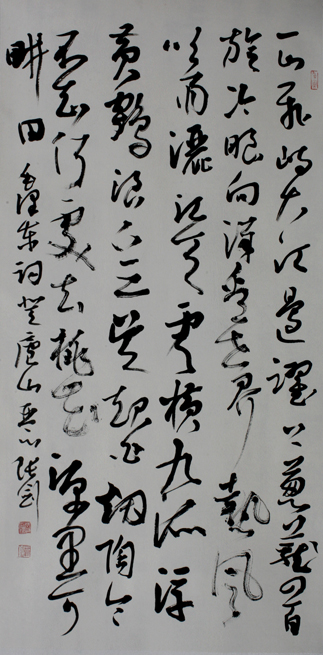 一山飛峙大江邊躍上葱蘢四百
旋冷眼向洋看世界熱風
吹雨灑江天雲橫九派浮
黄鶴浪下三吴起白烟陶令
不知何處去桃花源里可
畊田 毛澤東詞登廬山 張劍